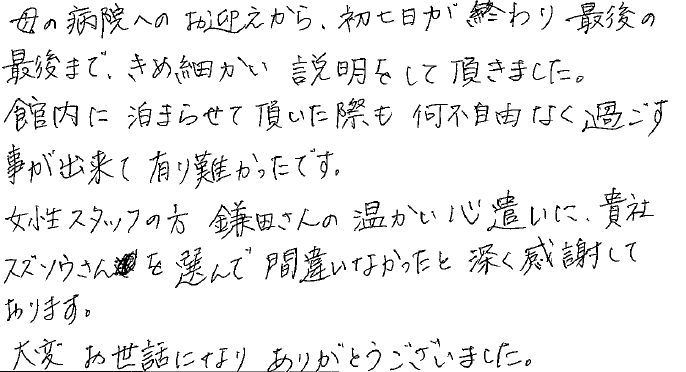 母の病院へのお迎えから、初七日が終わり最後の
最後まで、きめ細かい説明をして頂きました。
館内に泊まらせて頂いた際も何不自由なく過ごす
事が出来て有り難かったです。
女性スタッフの方鎌田さんの温かい心遣いに、貴社
スズソウさんを選んで間違いなかったと深く感謝して
おります。
大変お世話になりありがとうございました。